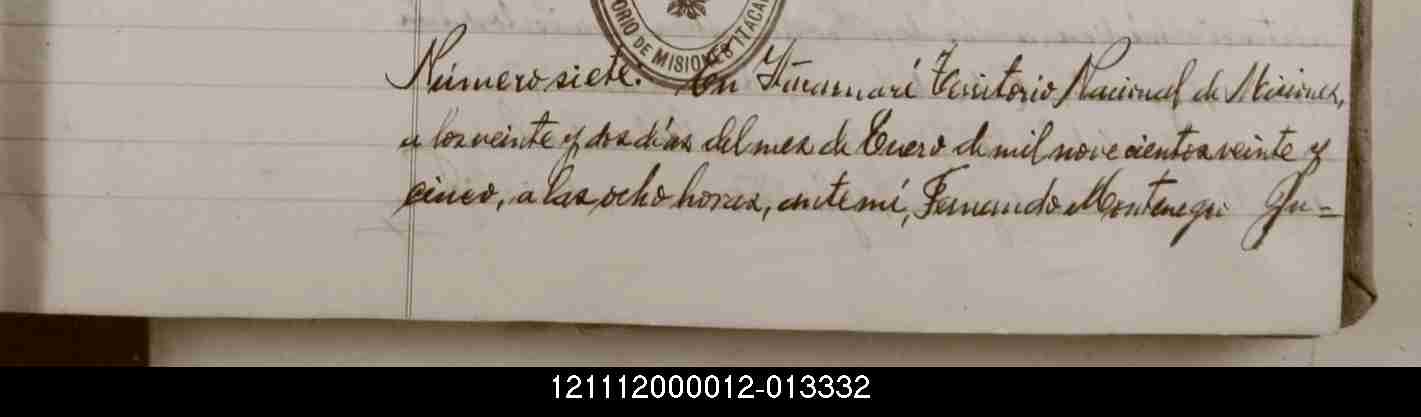 ORIO DE MISIONES ITACA
Número siete. En Itacaruaré Territorio Nacional de Misiones,
a los veinte y dos días del mes de Enero de mil novecientos veinte y
cinco, a las ocho horas, ante mí, Fernando Montenegro Ju-
121112000012-013332